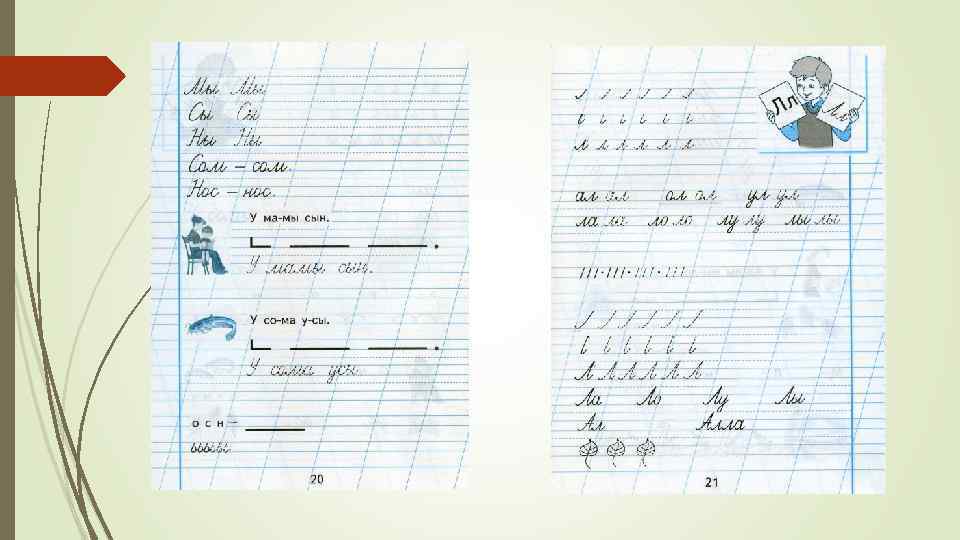 Мы Мы
Сы Сы
Ны Ны
Сом – сом.
Нос – нос.
У ма-мы сын.
У мамы сын.
У со-ма у-сы.
У сома усы.
о с н –
ыыыы
20
Лл Лл
л л л л л л
ал ал ол ол ул ул
ла ла ло ло лу лу лы лы
Л Л Л Л Л Л
Ла Ло Лу Лы
Ал Алла
21